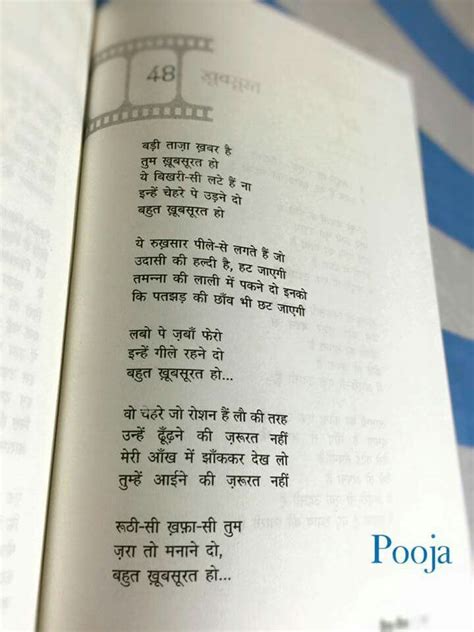 48 ख़ूबसूरत
बड़ी ताज़ा ख़बर है
तुम ख़ूबसूरत हो
ये बिखरी-सी लटे हैं ना
इन्हें चेहरे पे उड़ने दो
बहुत ख़ूबसूरत हो
ये रुख़सार पीले-से लगते हैं जो
उदासी की हल्दी है, हट जाएगी
तमन्ना की लाली में पकने दो इनको
कि पतझड़ की छाँव भी छट जाएगी
लबो पे ज़बाँ फेरो
इन्हें गीले रहने दो
बहुत ख़ूबसूरत हो...
वो चेहरे जो रोशन हैं लौ की तरह
उन्हें ढूँढ़ने की ज़रूरत नहीं
मेरी आँख में झाँककर देख लो
तुम्हें आईने की ज़रूरत नहीं
रूठी-सी ख़फ़ा-सी तुम
ज़रा तो मनाने दो,
बहुत ख़ूबसूरत हो...
Pooja